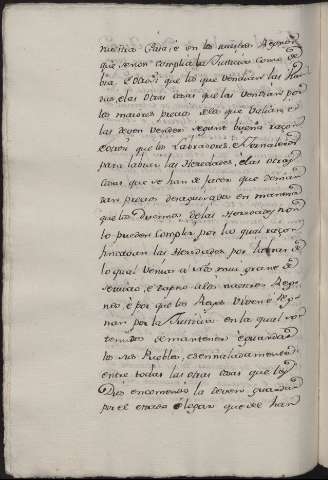 nuestra Casa, e en los nuestros Regnos
que se non complia la Justicia como de
bia. E otrosi que los que vendian las
las otras cosas que las vendian por
los maiores precios de lo que valian e
las deven vender segunt buena razon
e otrosi que los Labradores, e
para labrar las Heredades, e las otras
cosas que se han de facer que deman
dan precios desaguisados en manera
que los Duennos de las Heredades non
lo pueden complir, por lo qual razon
fincaban las Heredades por labrar de
lo qual venia a Nos mui grave de
servicio, e daño a los nuestros Reg
nos, e por que los Reyes viven e Reg
nan por la Justicia en la qual son
tenudos de mantener e guardar
los sus Pueblos, e sennaladamente
entre todas las otras cosas que les
Dios encomendo la deven guardar
por el estado e logar que del han